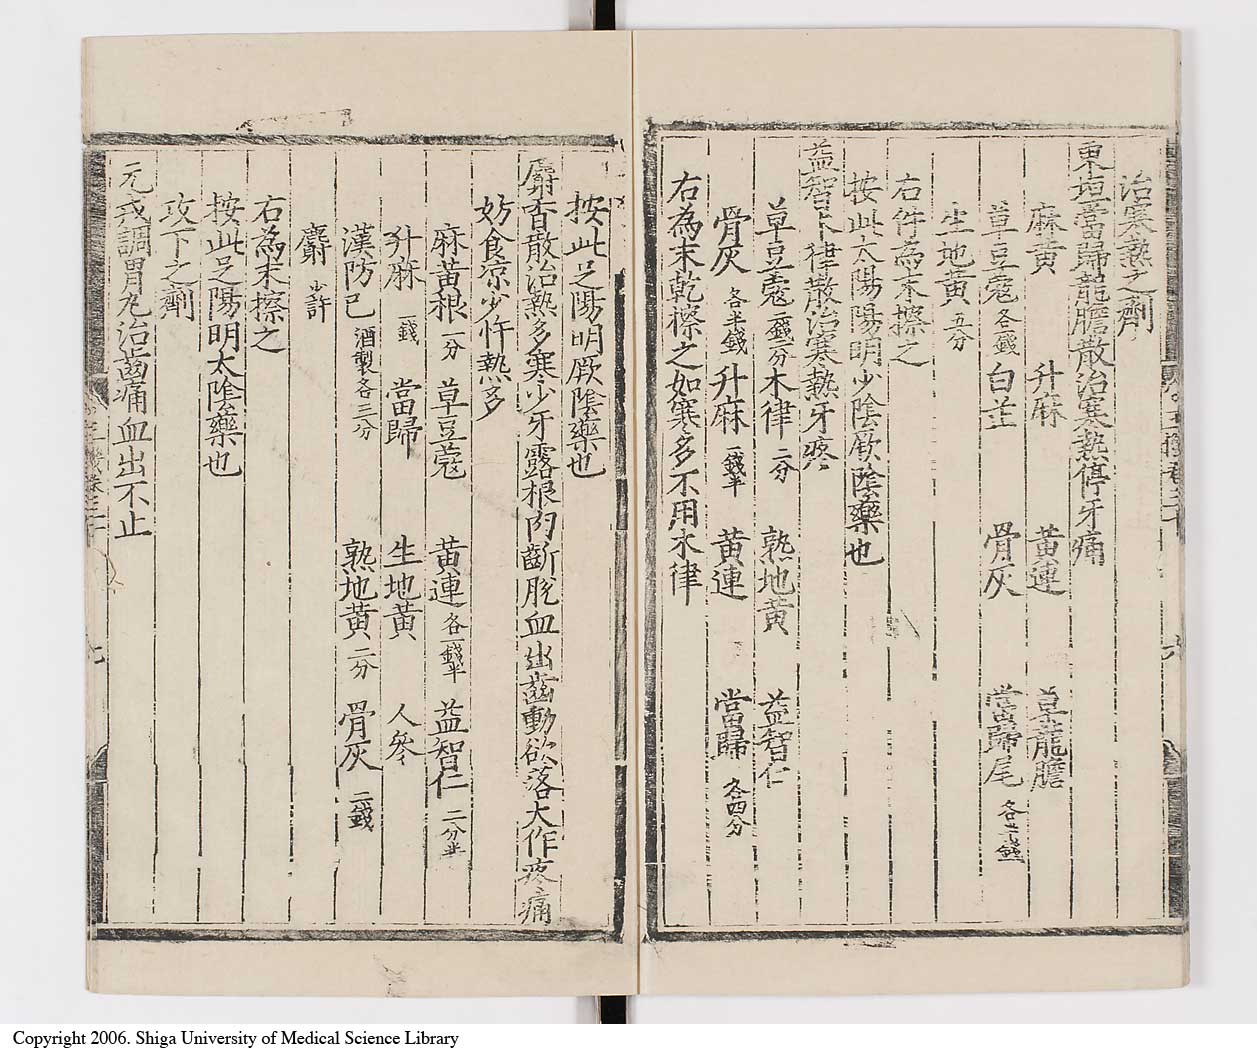 治寒熱之劑
東垣當歸龍膽散治寒熱停牙痛
麻黄 升麻 黄連 草龍膽
草豆蔻各一錢 白芷 骨灰 當歸尾各
生地黄五分
右件為末擦之
按此太陽陽明少陰厥陰藥也
益智木律散治寒熱牙疼
草豆蔻二錢二分 木律二分 熟地黄 益智仁
骨灰各半錢 升麻一錢半 黄連 當歸各四分
右為末乾擦之如寒多不用木律
按此足陽明厥陰藥也
麝香散治熱多寒少牙露根肉斷脫血出齒動欲落大作疼痛
妨食凉少忤熱多
麻黄根一分 草豆蔻 黄連各一錢半 益智仁二分半
升麻一錢 當歸 生地黄 人參
漢防已酒製各三分 熟地黄二分 骨灰二錢
麝少許
右為末擦之
按此足陽明太陰藥也
攻下之劑
元戎調胃丸治齒痛血出不止
Copyright 2006. Shiga University of Medical Science Library